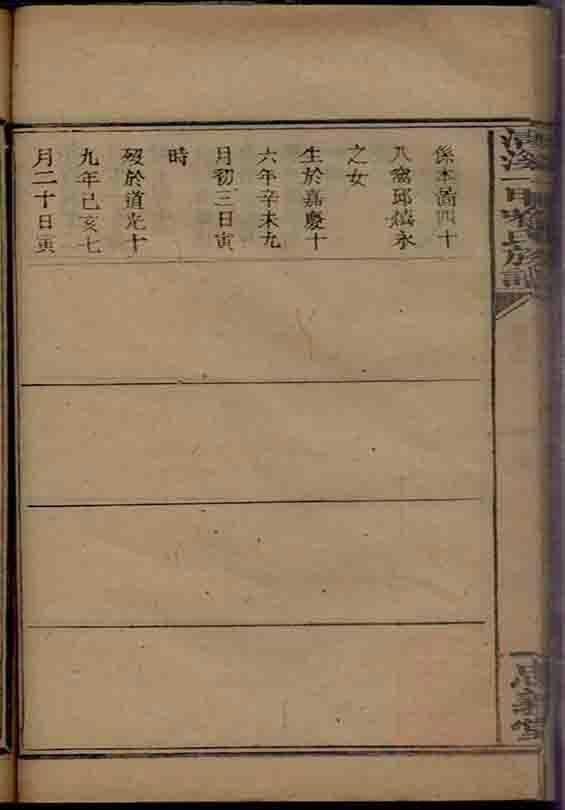 係本啚四十
八窩邱嬪永
之女
生於嘉慶十
六年辛未九
月初三日寅
時
歿於道光十
九年己亥七
月二十日寅
氏族譜
忠義堂